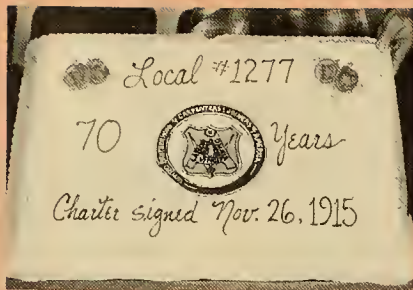 Local #1277
70 Years
Charter signed Nov. 26, 1915